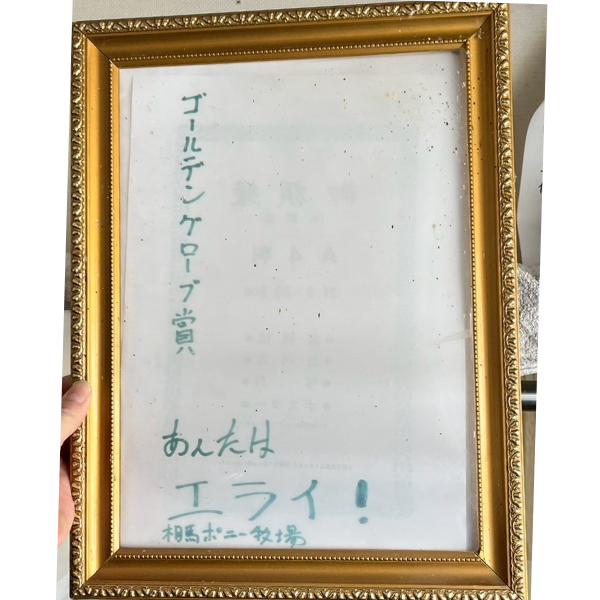 ゴールデングローブ賞
あんたは
エライ!
相馬ポニー牧場